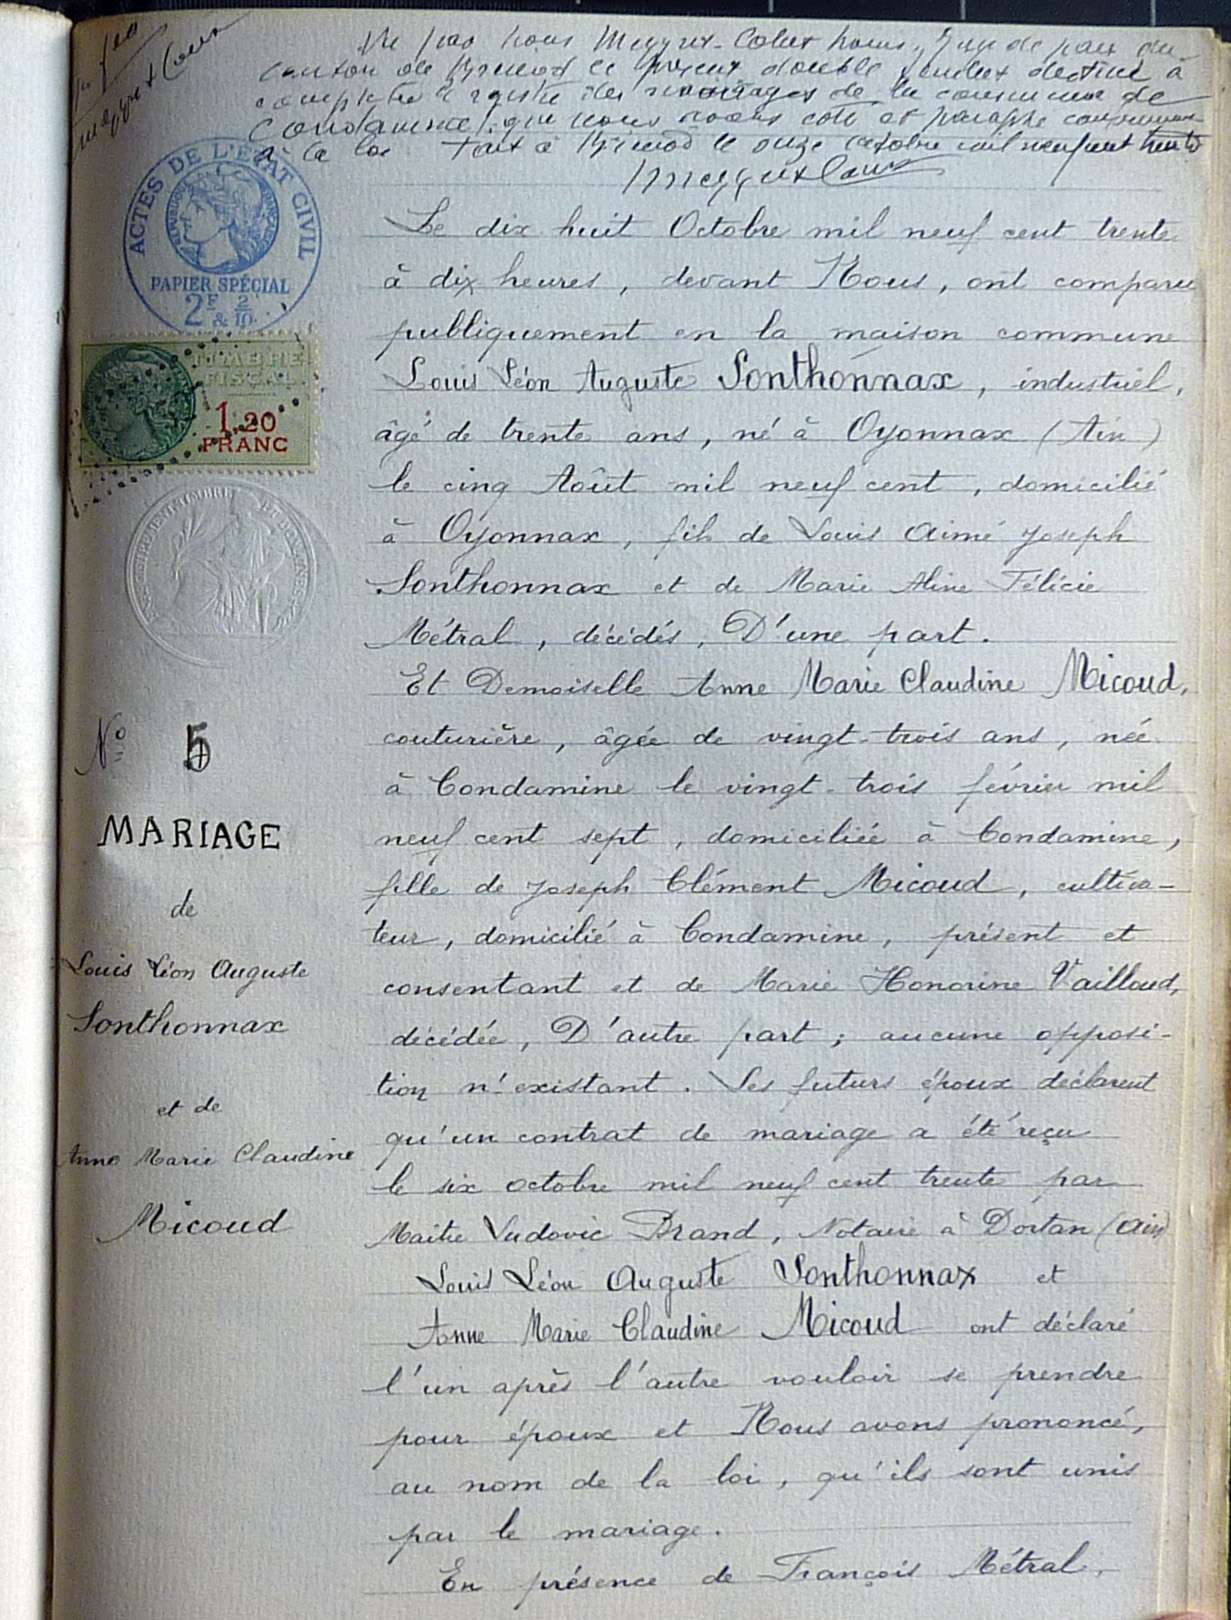 Vu par nous juge de paix du
canton de Brénod le présent double feuillet destiné à
compléter le registre des mariages de la commune de
Condamine, que nous avons coté et paraphé conformément
à la loi Fait à Brénod le onze octobre mil neuf cent trente
ACTES DE L'ÉTAT CIVIL
RÉPUBLIQUE FRANÇAISE
PAPIER SPÉCIAL
2F & 2/10
TIMBRE
FISCAL
1.20
FRANC
Le dix huit Octobre mil neuf cent trente
à dix heures, devant Nous, ont comparu
publiquement en la maison commune
Louis Léon Auguste Sonthonnax, industriel,
âgé de trente ans, né à Oyonnax (Ain)
le cinq Août mil neuf cent, domicilié
à Oyonnax, fils de Louis Aimé Joseph
Sonthonnax et de Marie Aline Félicie
Métral, décédés, D'une part.
Et Demoiselle Anne Marie Claudine Micoud,
couturière, âgée de vingt-trois ans, née
à Condamine le vingt-trois février mil
neuf cent sept, domiciliée à Condamine,
fille de Joseph Clément Micoud, cultiva-
teur, domicilié à Condamine, présent et
consentant et de Marie Honorine Vailloud,
décédée, D'autre part ; aucune opposi-
tion n'existant. Les futurs époux déclarent
qu'un contrat de mariage a été reçu
le six octobre mil neuf cent trente par
Maitre Ludovic Brand, Notaire à Dortan (Ain)
Louis Léon Auguste Sonthonnax et
Anne Marie Claudine Micoud ont déclaré
l'un après l'autre vouloir se prendre
pour époux et Nous avons prononcé,
au nom de la loi, qu'ils sont unis
par le mariage.
En présence de François Métral,
No 5
MARIAGE
de
Louis Léon Auguste
Sonthonnax
et de
Anne Marie Claudine
Micoud